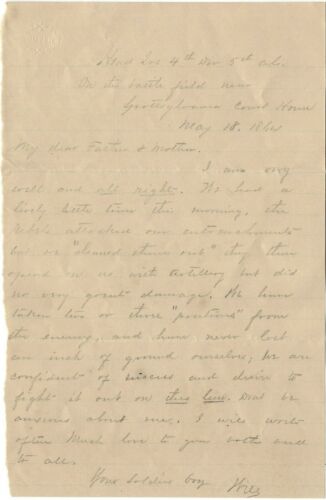 Head Qrs 4th Div 5th
On the battle field near
Spottsylvania Court House
May 18. 1864
My dear Father & Mother.
I am very
well and all right. We had a
lively little time this morning, the
rebels attacked our entrenchments
but we "cleaned them out" they then
opened on us with artillery but did
no very great damage. We have
taken two or three "positions" from
the enemy, and have never lost
an inch of ground ourselves, We are
confident of success and desire to
fight it out on this line. Dont be
anxious about me, I will write
often Much love to you both and
to all.
Your soldier boy